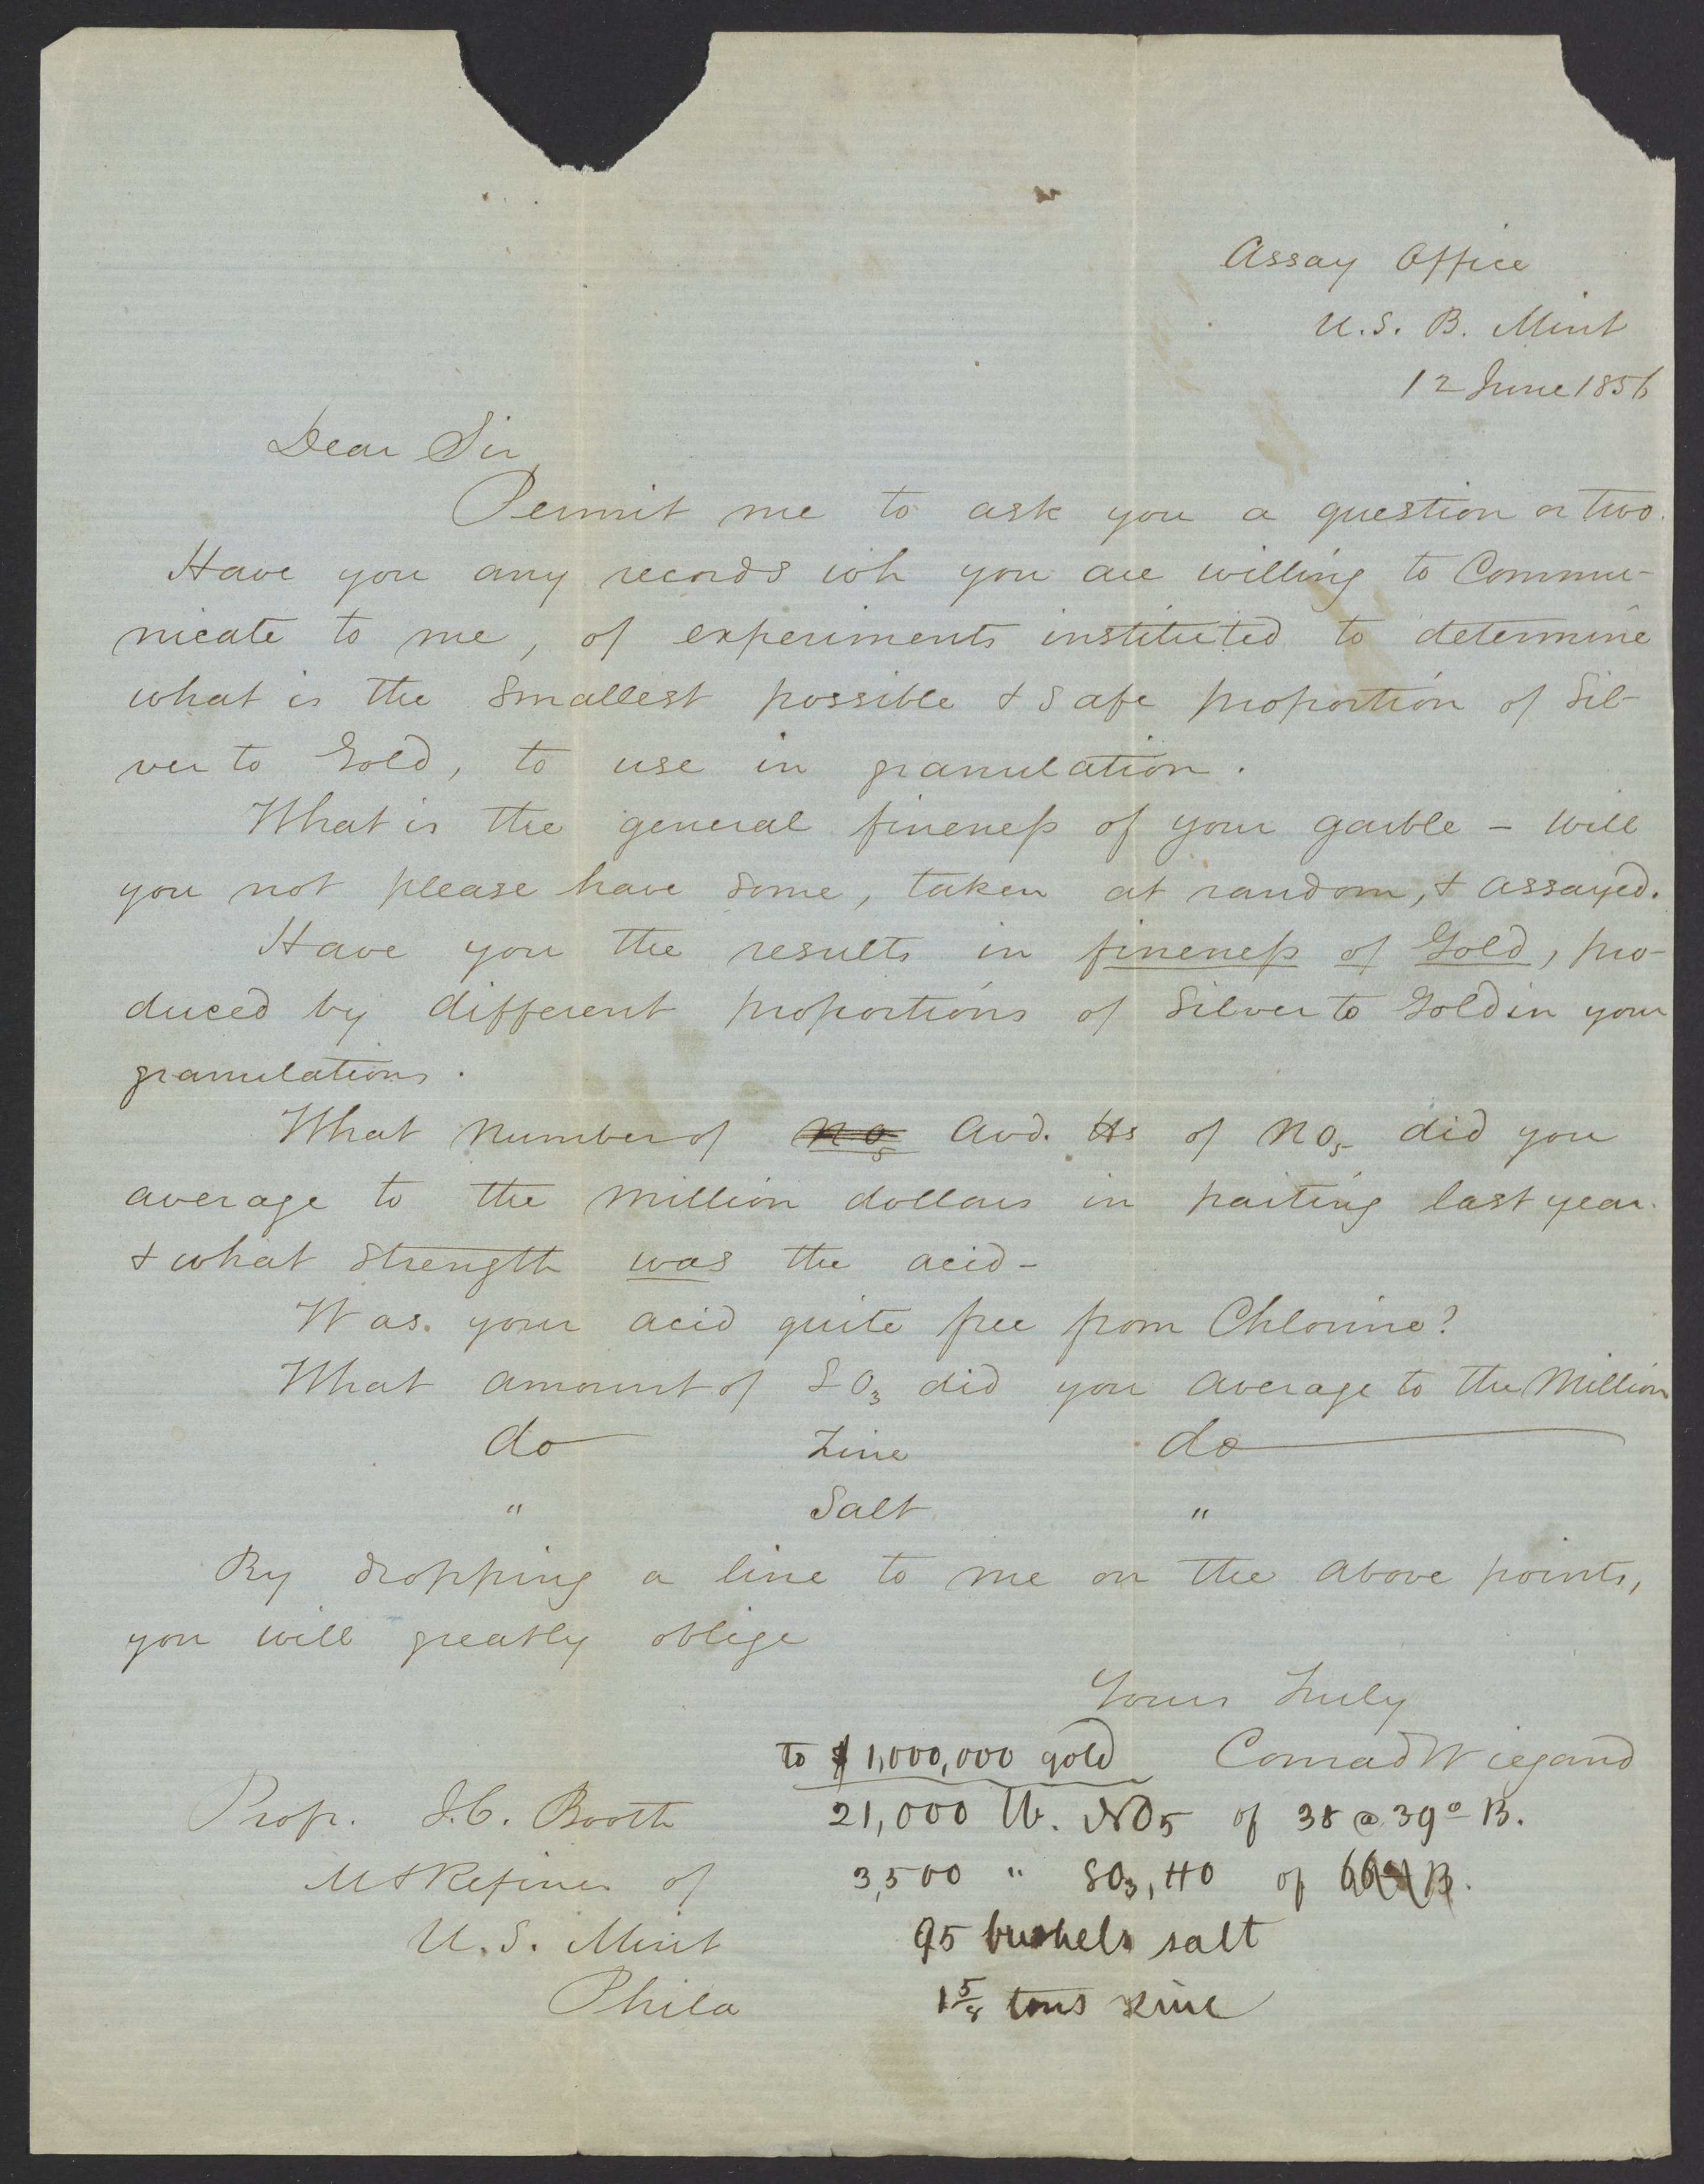 Assay Office
U.S. B. Mint
12 June 1856
Dear Sir
Permit me to ask you a question or two.
Have you any records wh you are willing to Commu-
nicate to me, of experiments instituted to determine
what is the smallest possible & safe proportion of Sil-
ver to Gold, to use in granulation.
What is the general fineness of your garble - will
you not please have some, taken at random, & assayed.
Have you the results in fineness of Gold, pro-
duced by different proportions of Silver to Gold in your
granulations.
What number of NO5 Avd. lbs of NO5 did you
average to the million dollars in parting last year.
& what strength was the acid -
Was your acid quite free from Chlorine?
What amount of SO3 did you average to the Million
do Zinc do
" Salt "
By dropping a line to me on the above points,
you will greatly oblige
Yours Truly
Conrad Wiegand
to $1,000,000 gold
21,000 lb. NO5 of 38 @ 39° B.
3,500 " SO3, HO of 66° B.
95 bushels salt
1 5/8 tons zinc
Prof. J.C. Booth
M & Refiner of
U.S. Mint
Phila